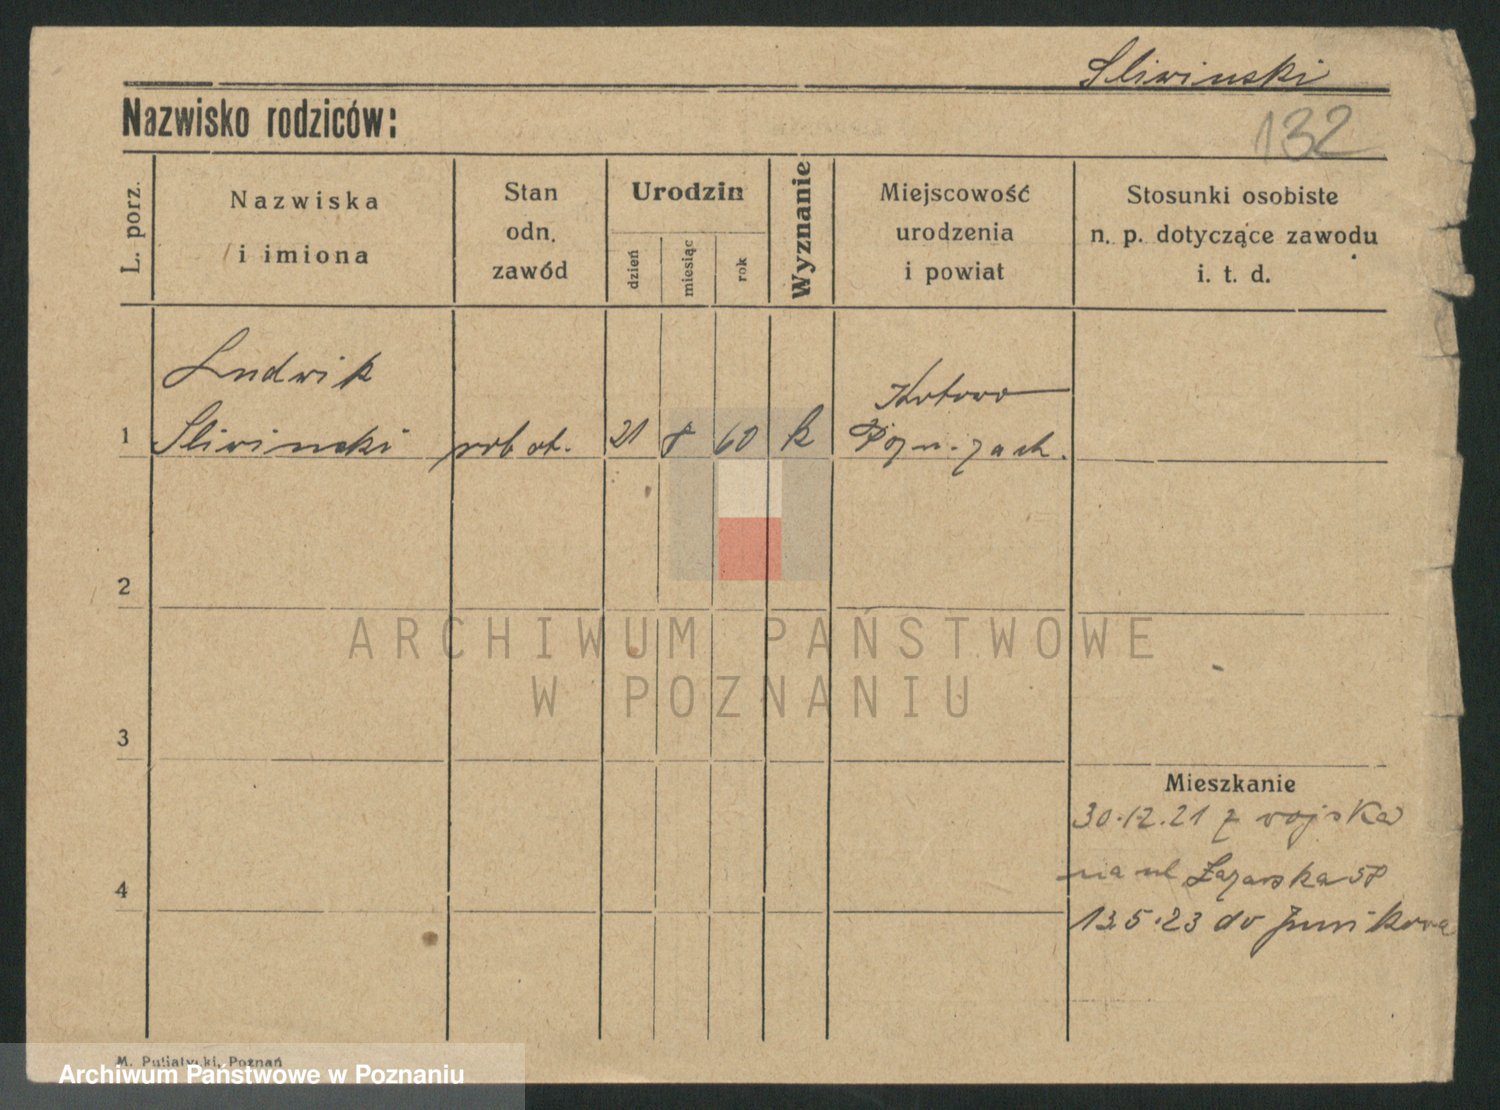 Sliwinski
Nazwisko rodziców:
132
L. porz.
Nazwiska
i imiona
Stan
odn.
zawód
Urodzin
dzień
miesiąc
rok
Wyznanie
Miejscowość
urodzenia
i powiat
Stosunki osobiste
n. p. dotyczące zawodu
i. t. d.
Ludwik
Kotowo
1 Sliwinski robot. 21 8 60 k Pozn. zach.
2
ARCHIWUM PAŃSTWOWE
W POZNANIU
3
Mieszkanie
30.12.21 z wojska
na ul Łazarska
4
13.5.23 do Junikowa
M. Putiatycki, Poznań
Archiwum Państwowe w Poznaniu